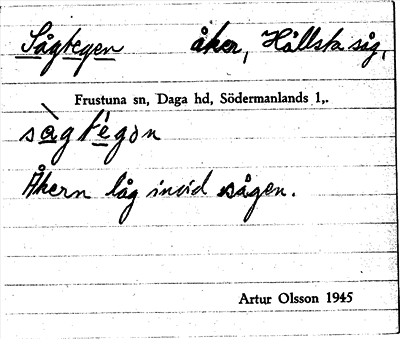 Sågtegen åker, Hållsta såg,
Frustuna sn, Daga hd, Södermanlands l,.
sàgtégɔn
Åkern låg invid sågen.
Artur Olsson 1945